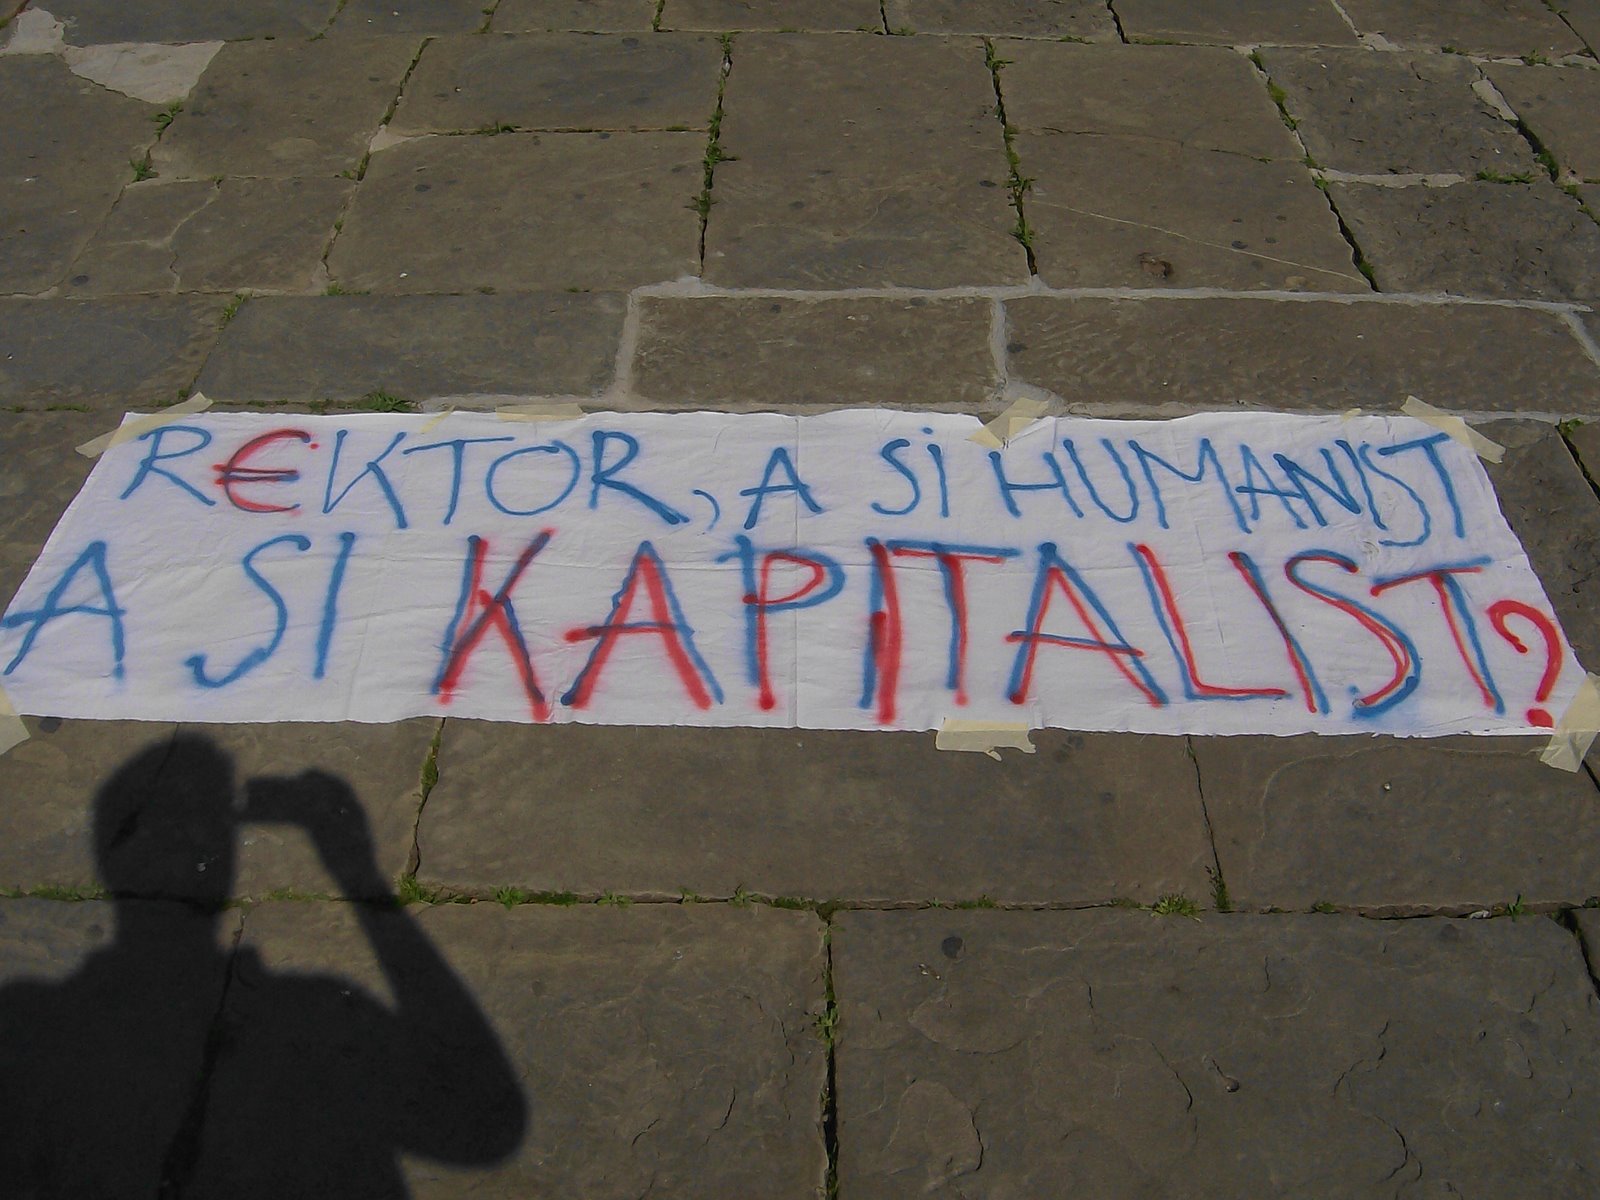 R€KTOR, A SI HUMANIST
A SI KAPITALIST?